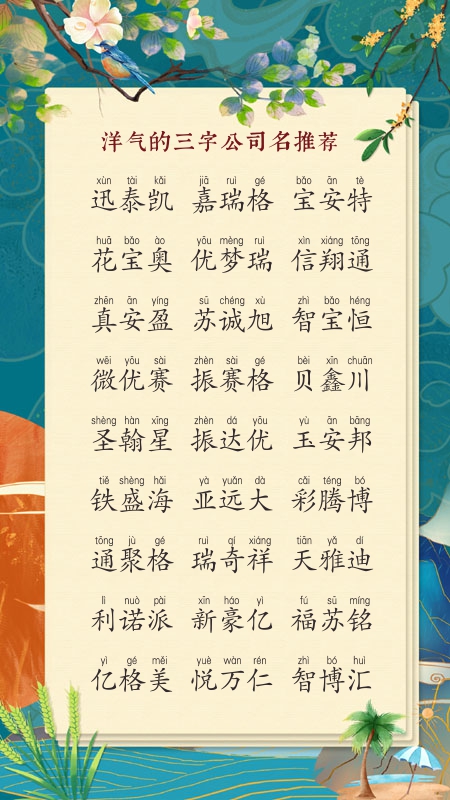 洋气的三字公司名推荐
xùn tài kǎi jiā ruì gé bǎo ān tè
迅泰凯 嘉瑞格 宝安特
huā bǎo ào yōu mèng ruì xìn xiáng tōng
花宝奥 优梦瑞 信翔通
zhēn ān yíng sū chéng xù zhì bǎo héng
真安盈 苏诚旭 智宝恒
wēi yōu sài zhèn sài gé bèi xīn chuān
微优赛 振赛格 贝鑫川
shèng hàn xīng zhèn dá yōu yù ān bāng
圣翰星 振达优 玉安邦
tiě shèng hǎi yà yuǎn dà cǎi téng bó
铁盛海 亚远大 彩腾博
tōng jù gé ruì qí xiáng tiān yǎ dí
通聚格 瑞奇祥 天雅迪
lì nuò pài xīn háo yì fú sū míng
利诺派 新豪亿 福苏铭
yì gé měi yuè wàn rén zhì bó huì
亿格美 悦万仁 智博汇